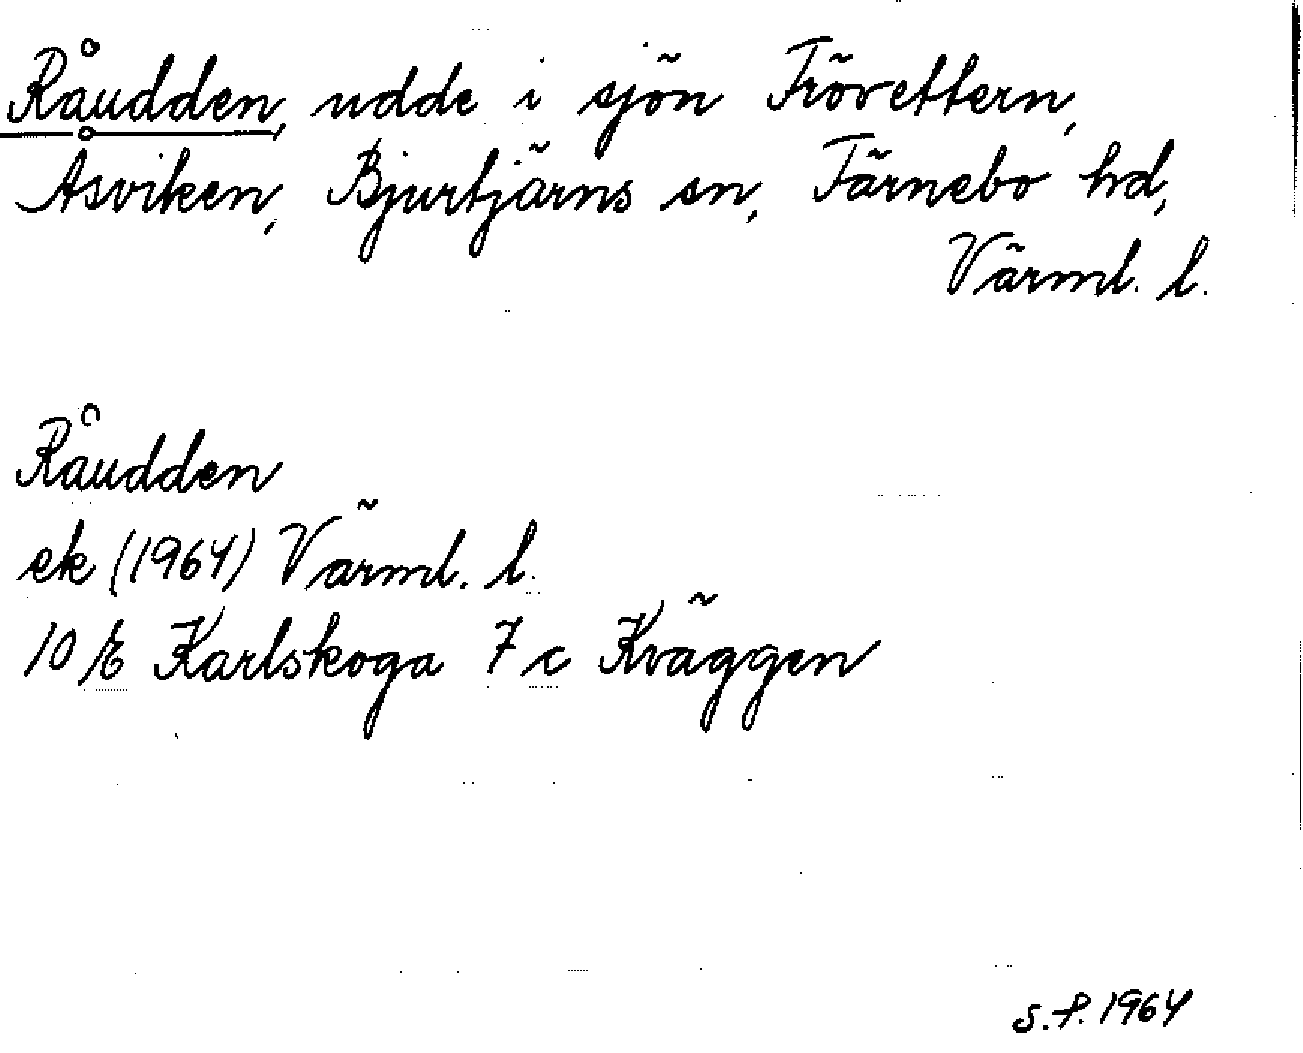 Råudden, udde i sjön Trövettern,
Åsviken, Bjurtjärns sn, Färnebo hd,
Värml. l.
Råudden
ek (1964) Värml. l.
10 E Karlskoga 7 c Kväggen
S.F. 1964